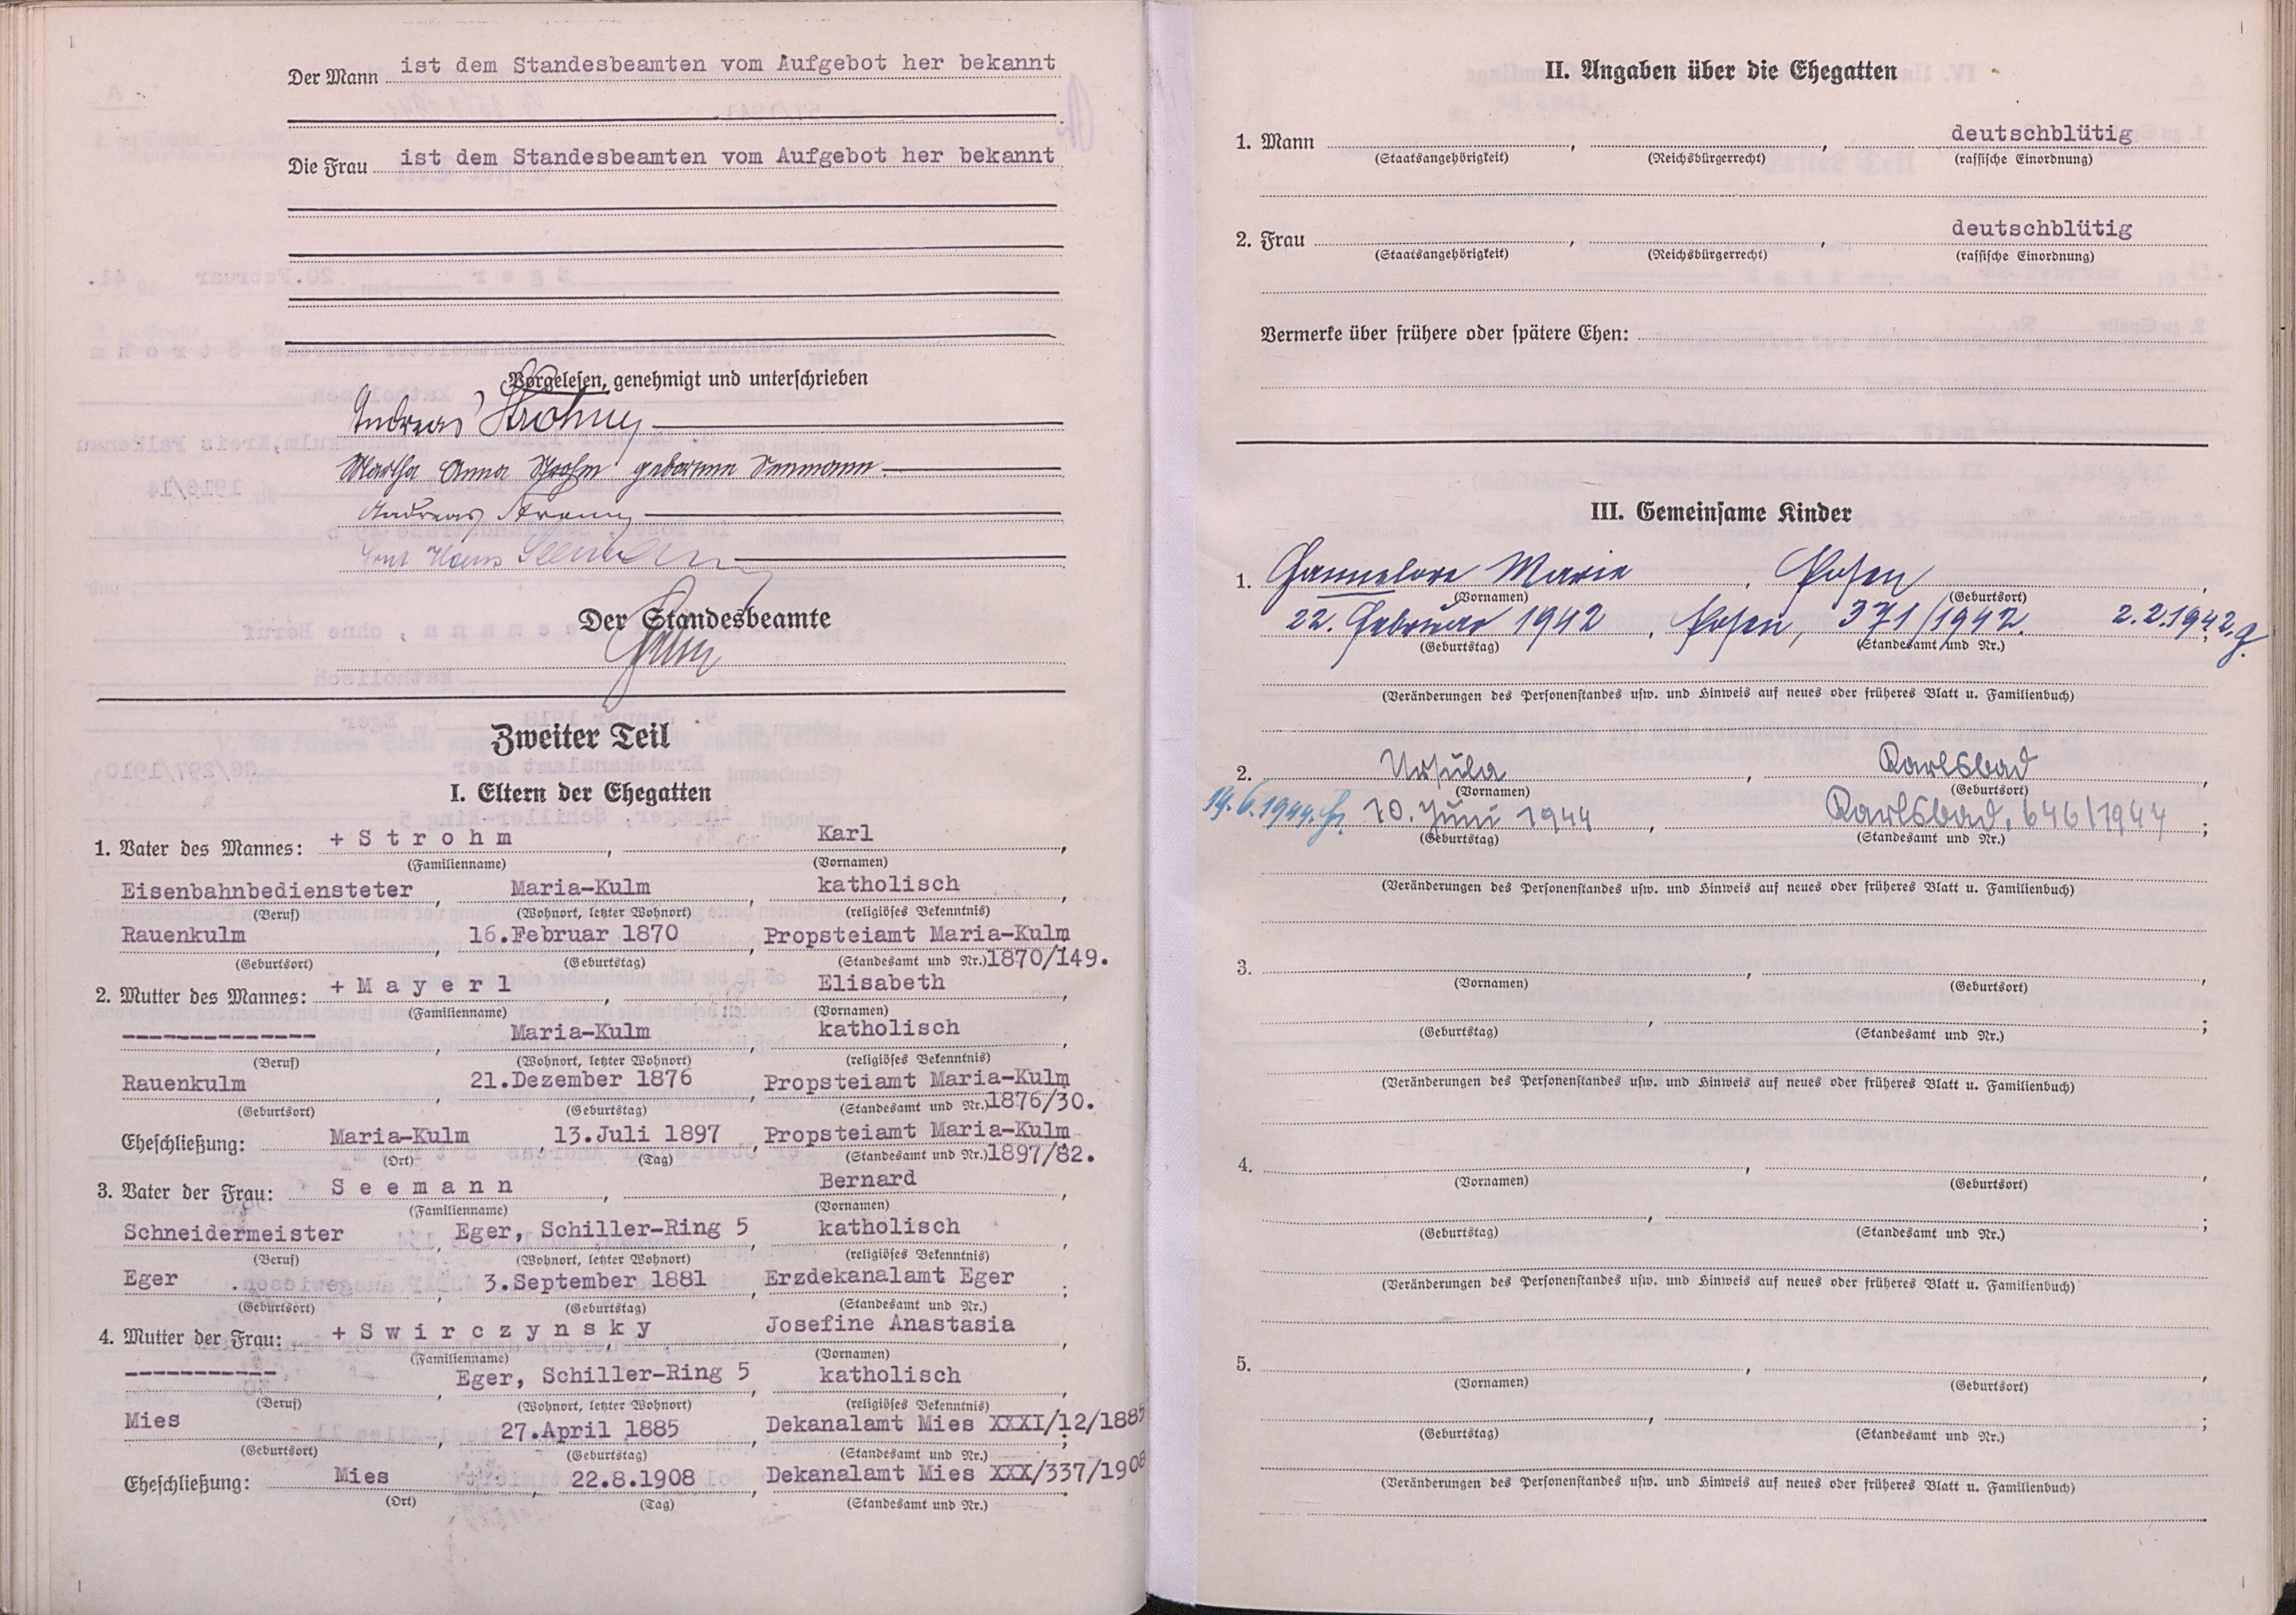 Der Mann ist dem Standesbeamten vom Aufgebot her bekannt
Die Frau ist dem Standesbeamten vom Aufgebot her bekannt
Vorgelesen, genehmigt und unterschrieben
Andreas Strohm
Martha Anna Strohm geborene Seemann
Andreas
Ernst Hans Seemann
Der Standesbeamte
Zweiter Teil
I. Eltern der Ehegatten
1. Vater des Mannes: + S t r o h m , Karl ,
(Familienname) (Vornamen)
Eisenbahnbediensteter , Maria-Kulm , katholisch ,
(Beruf) (Wohnort, letzter Wohnort) (religiöses Bekenntnis)
Rauenkulm , 16.Februar 1870 , Propsteiamt Maria-Kulm
(Geburtsort) (Geburtstag) (Standesamt und Nr.) 1870/149.
2. Mutter des Mannes: + M a y e r l , Elisabeth ,
(Familienname) (Vornamen)
-------------- , Maria-Kulm , katholisch ,
(Beruf) (Wohnort, letzter Wohnort) (religiöses Bekenntnis)
Rauenkulm , 21.Dezember 1876 , Propsteiamt Maria-Kulm
(Geburtsort) (Geburtstag) (Standesamt und Nr.) 1876/30.
Eheschließung: Maria-Kulm , 13.Juli 1897 , Propsteiamt Maria-Kulm
(Ort) (Tag) (Standesamt und Nr.) 1897/82.
3. Vater der Frau: S e e m a n n , Bernard ,
(Familienname) (Vornamen)
Schneidermeister , Eger, Schiller-Ring 5 , katholisch ,
(Beruf) (Wohnort, letzter Wohnort) (religiöses Bekenntnis)
Eger , 3.September 1881 , Erzdekanalamt Eger ;
(Geburtsort) (Geburtstag) (Standesamt und Nr.)
4. Mutter der Frau: + S w i r c z y n s k y , Josefine Anastasia ,
(Familienname) (Vornamen)
----------- , Eger, Schiller-Ring 5 , katholisch ,
(Beruf) (Wohnort, letzter Wohnort) (religiöses Bekenntnis)
Mies , 27.April 1885 , Dekanalamt Mies XXXI/12/1885 ;
(Geburtsort) (Geburtstag) (Standesamt und Nr.)
Eheschließung: Mies , 22.8.1908 , Dekanalamt Mies XXX/337/1908 .
(Ort) (Tag) (Standesamt und Nr.)
II. Angaben über die Ehegatten
1. Mann , , deutschblütig
(Staatsangehörigkeit) (Reichsbürgerrecht) (rassische Einordnung)
2. Frau , , deutschblütig
(Staatsangehörigkeit) (Reichsbürgerrecht) (rassische Einordnung)
Vermerke über frühere oder spätere Ehen:
III. Gemeinsame Kinder
1. Hannelore Marie , Posen ,
(Vornamen) (Geburtsort)
22. Februar 1942 , Posen, 371/1942. 2.2.1942.
(Geburtstag) (Standesamt und Nr.)
(Veränderungen des Personenstandes usw. und Hinweis auf neues oder früheres Blatt u. Familienbuch)
2. Ursula , Karlsbad ,
(Vornamen) (Geburtsort)
19.6.1944. 10. Juni 1944 , Karlsbad, 646/1944 ;
(Geburtstag) (Standesamt und Nr.)
(Veränderungen des Personenstandes usw. und Hinweis auf neues oder früheres Blatt u. Familienbuch)
3. , ,
(Vornamen) (Geburtsort)
, ;
(Geburtstag) (Standesamt und Nr.)
(Veränderungen des Personenstandes usw. und Hinweis auf neues oder früheres Blatt u. Familienbuch)
4. , ,
(Vornamen) (Geburtsort)
, ;
(Geburtstag) (Standesamt und Nr.)
(Veränderungen des Personenstandes usw. und Hinweis auf neues oder früheres Blatt u. Familienbuch)
5. , ,
(Vornamen) (Geburtsort)
, ;
(Geburtstag) (Standesamt und Nr.)
(Veränderungen des Personenstandes usw. und Hinweis auf neues oder früheres Blatt u. Familienbuch)